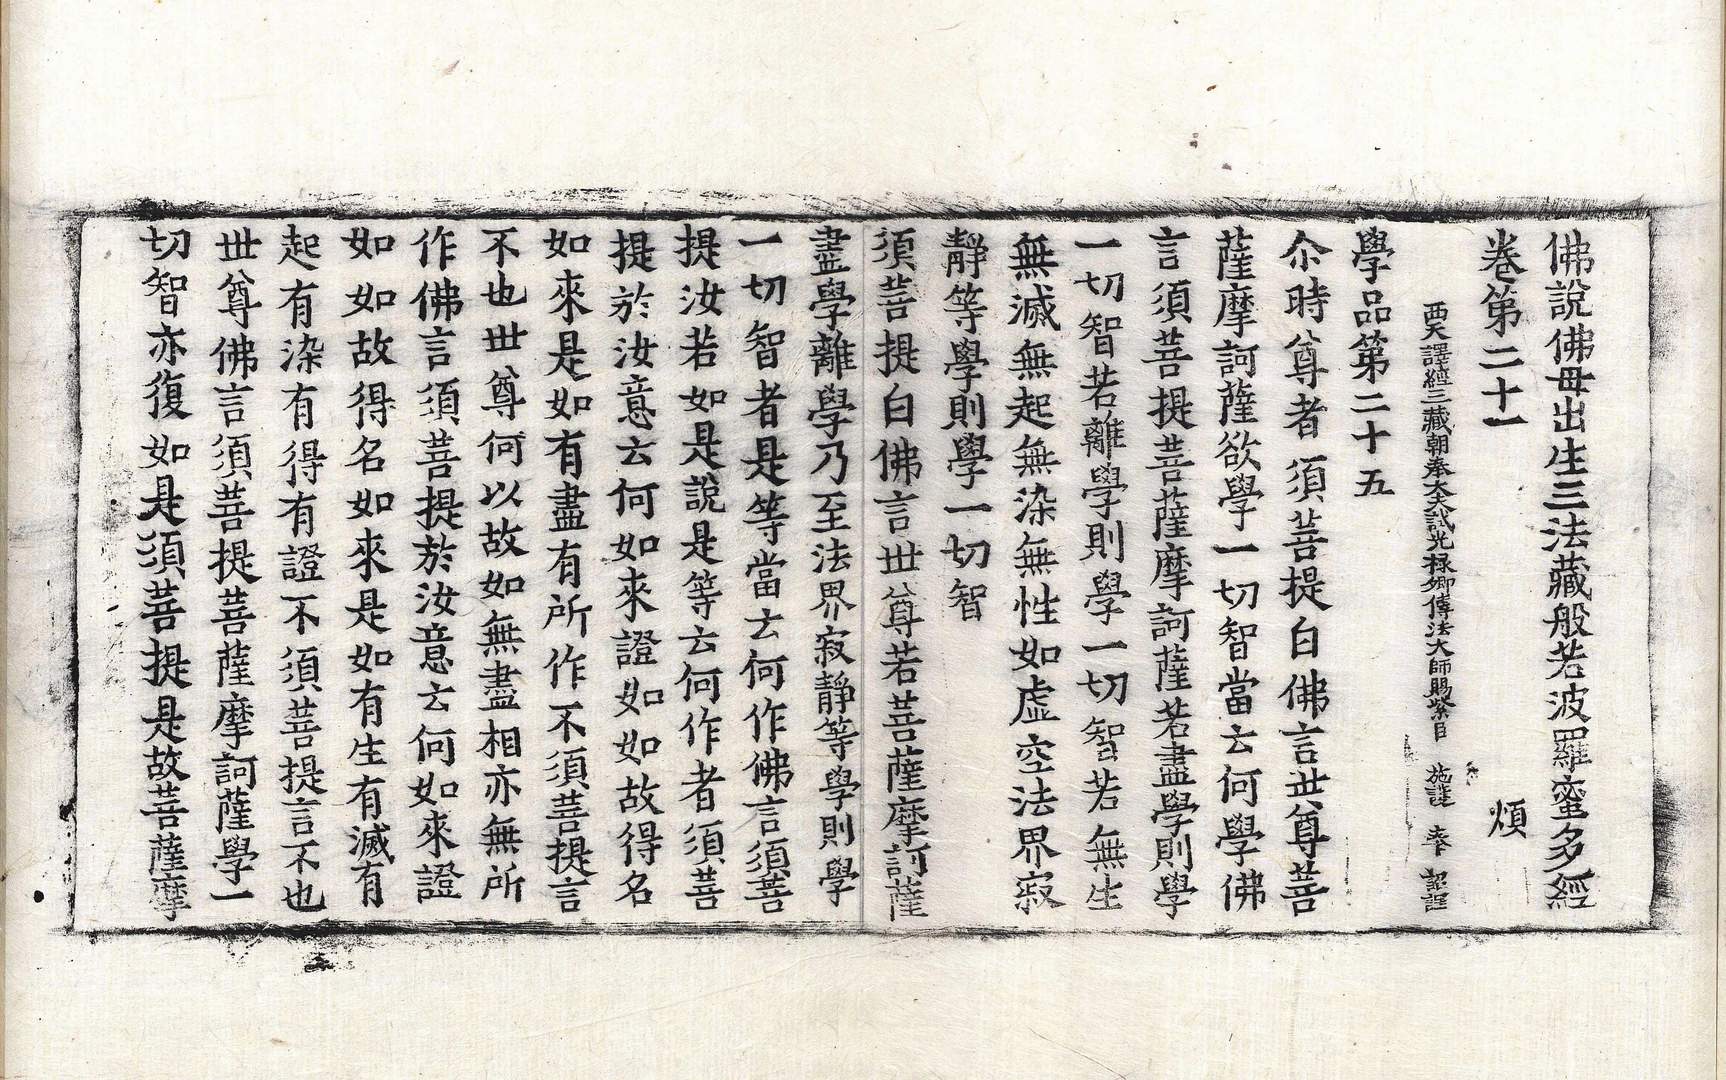 佛說佛母出生三法藏般若波羅蜜多經
卷第二十一 煩
西天譯經三藏朝奉大夫試光祿卿傳法大師賜紫臣 施護 奉 詔譯
學品第二十五
尒時尊者須菩提白佛言世尊菩
薩摩訶薩欲學一切智當云何學佛
言須菩提菩薩摩訶薩若盡學則學
一切智若離學則學一切智若無生
無滅無起無染無性如虛空法界寂
靜等學則學一切智
須菩提白佛言世尊若菩薩摩訶薩
盡學離學乃至法界寂靜等學則學
一切智者是等當云何作佛言須菩
提汝若如是說是等云何作者須菩
提於汝意云何如來證如如故得名
如來是如有盡有所作不須菩提言
不也世尊何以故如無盡相亦無所
作佛言須菩提於汝意云何如來證
如如故得名如來是如有生有滅有
起有染有得有證不須菩提言不也
世尊佛言須菩提菩薩摩訶薩學一
切智亦復如是須菩提是故菩薩摩